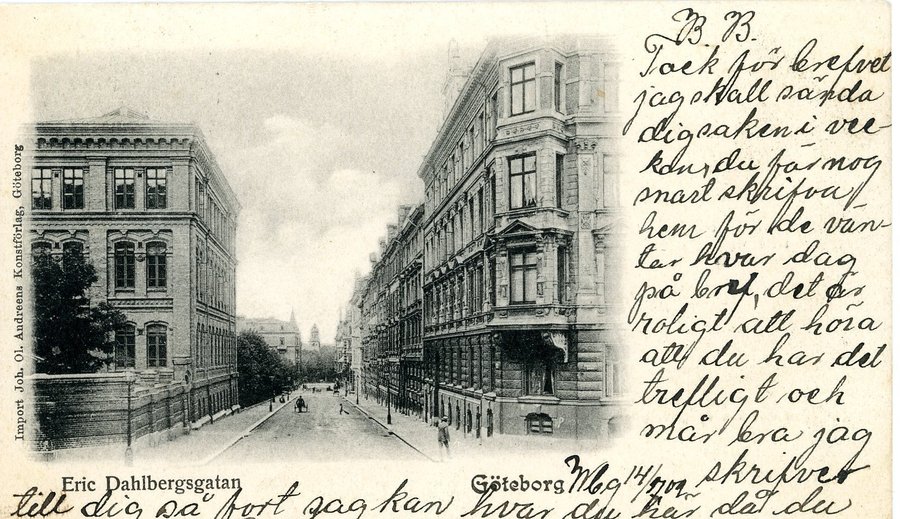 B B.
Tack för brefvet
jag skall sända
dig saken i vec-
kan, du får nog
snart skrifva
hem för de vän-
tar hvar dag
på bref, det är
roligt att höra
att du har det
trefligt och
mår bra jag
skrifver
till dig så fort jag kan hvar du är då du
Import Joh. Ol. Andreens Konstförlag, Göteborg
Eric Dahlbergsgatan
Göteborg
14/